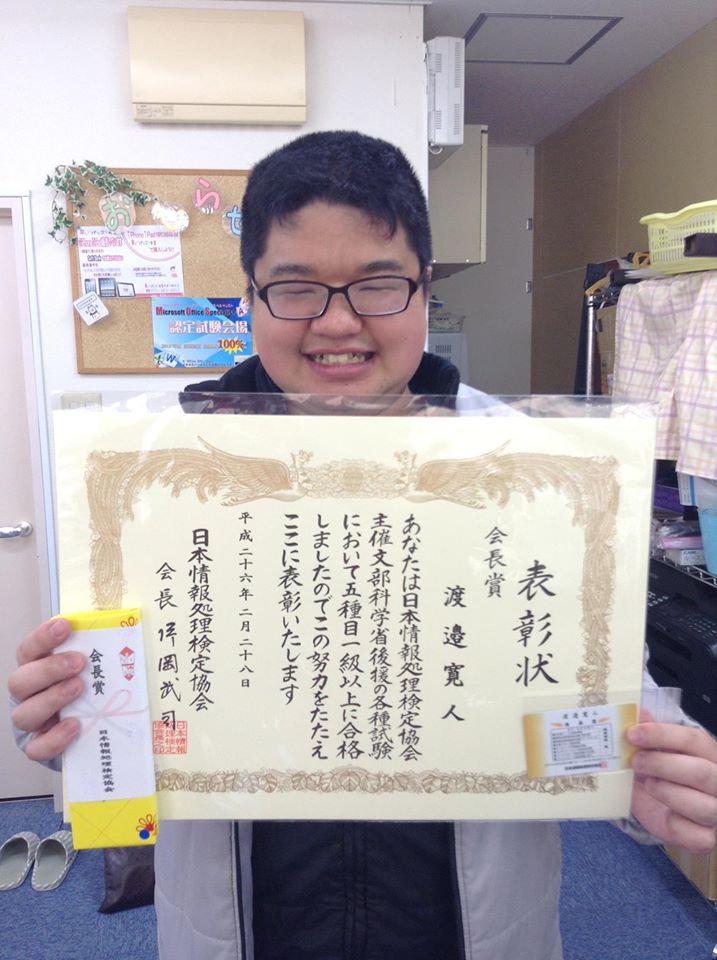 おらせ
Microsoft Office Specialist
認定試験会場
100%
表彰状
会長賞
渡邉寛人
あなたは日本情報処理検定協会
主催文部科学省後援の各種試験
において五種目一級以上に合格
しましたのでこの努力をたたえ
ここに表彰いたします
平成二十六年二月二十八日
日本情報処理検定協会
会長
武司
会長賞
日本情報処理検定協会
渡邉寛人